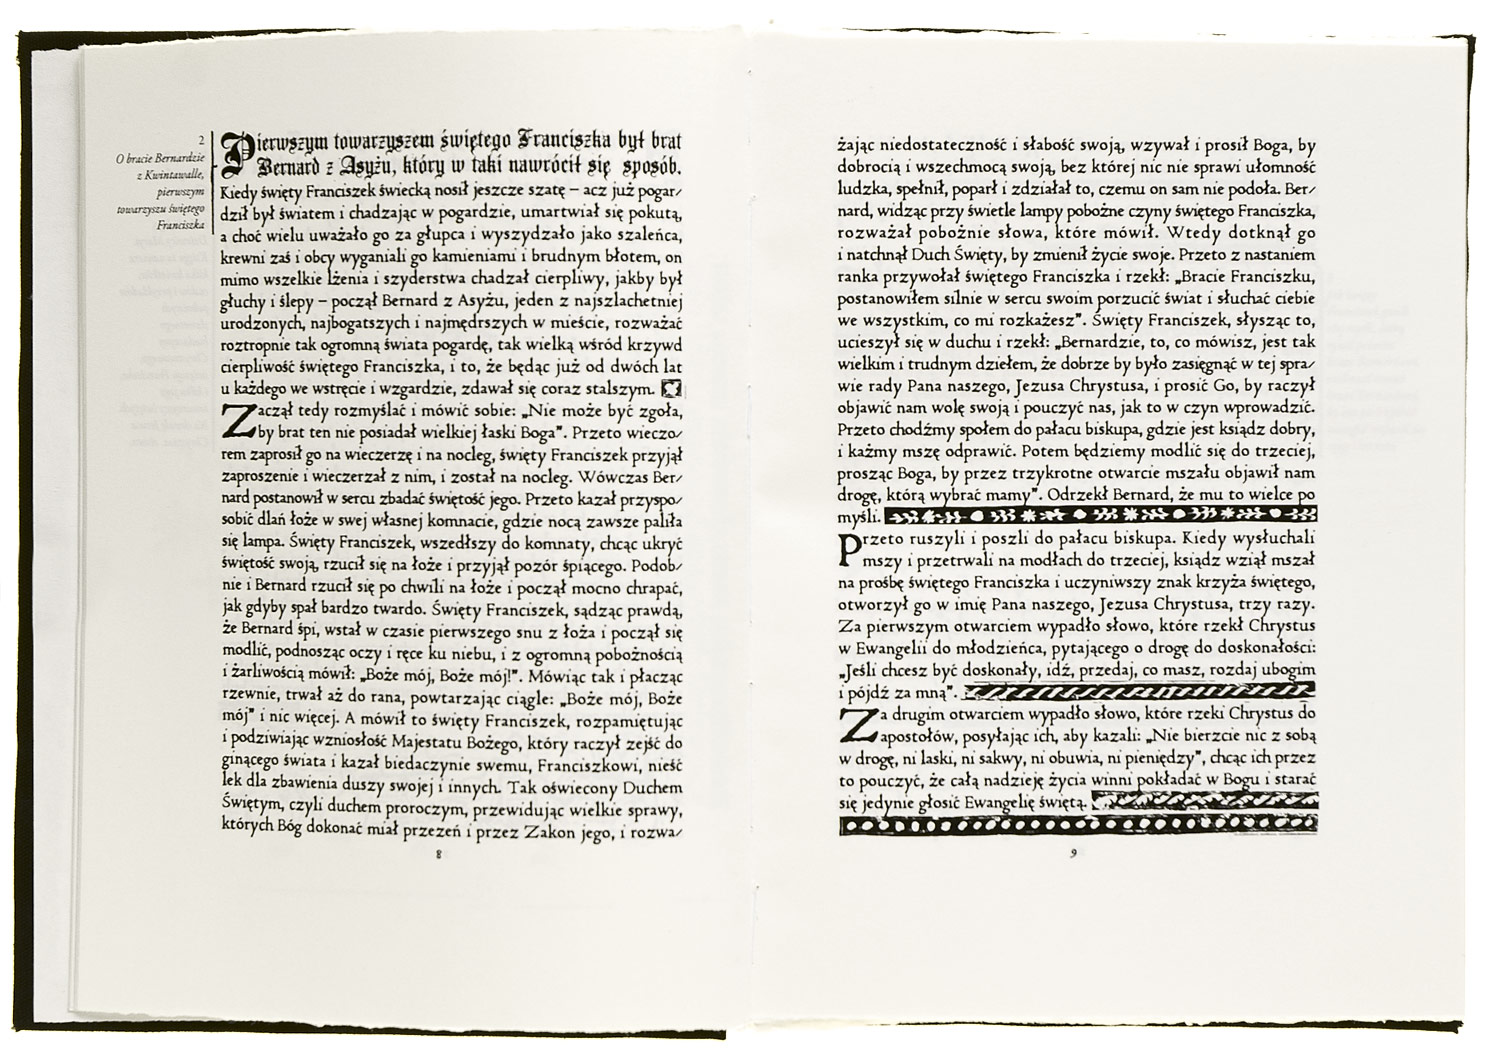 2
O bracie Bernardzie
z Kwintawalle,
pierwszym
towarzyszu świętego
Franciszka
Pierwszym towarzyszem świętego Franciszka był brat
Bernard z Asyżu, który w taki nawrócił się sposób.
Kiedy święty Franciszek świecką nosił jeszcze szatę – acz już pogar/
dził był światem i chadzając w pogardzie, umartwiał się pokutą,
a choć wielu uważało go za głupca i wyszydzało jako szaleńca,
krewni zaś i obcy wyganiali go kamieniami i brudnym błotem, on
mimo wszelkie lżenia i szyderstwa chadzał cierpliwy, jakby był
głuchy i ślepy – począł Bernard z Asyżu, jeden z najszlachetniej
urodzonych, najbogatszych i najmędrszych w mieście, rozważać
roztropnie tak ogromną świata pogardę, tak wielką wśród krzywd
cierpliwość świętego Franciszka, i to, że będąc już od dwóch lat
u każdego we wstręcie i wzgardzie, zdawał się coraz stalszym.
Zaczął tedy rozmyślać i mówić sobie: „Nie może być zgoła,
by brat ten nie posiadał wielkiej łaski Boga”. Przeto wieczo/
rem zaprosił go na wieczerzę i na nocleg, święty Franciszek przyjął
zaproszenie i wieczerzał z nim, i został na nocleg. Wówczas Ber/
nard postanowił w sercu zbadać świętość jego. Przeto kazał przyspo/
sobić dlań łoże w swej własnej komnacie, gdzie nocą zawsze paliła
się lampa. Święty Franciszek, wszedłszy do komnaty, chcąc ukryć
świętość swoją, rzucił się na łoże i przyjął pozór śpiącego. Podob/
nie i Bernard rzucił się po chwili na łoże i począł mocno chrapać,
jak gdyby spał bardzo twardo. Święty Franciszek, sądząc prawdą,
że Bernard śpi, wstał w czasie pierwszego snu z łoża i począł się
modlić, podnosząc oczy i ręce ku niebu, i z ogromną pobożnością
i żarliwością mówił: „Boże mój, Boże mój!”. Mówiąc tak i płacząc
rzewnie, trwał aż do rana, powtarzając ciągle: „Boże mój, Boże
mój” i nic więcej. A mówił to święty Franciszek, rozpamiętując
i podziwiając wzniosłość Majestatu Bożego, który raczył zejść do
ginącego świata i kazał biedaczynie swemu, Franciszkowi, nieść
lek dla zbawienia duszy swojej i innych. Tak oświecony Duchem
Świętym, czyli duchem proroczym, przewidując wielkie sprawy,
których Bóg dokonać miał przezeń i przez Zakon jego, i rozwa/
8
żając niedostateczność i słabość swoją, wzywał i prosił Boga, by
dobrocią i wszechmocą swoją, bez której nic nie sprawi ułomność
ludzka, spełnił, poparł i zdziałał to, czemu on sam nie podoła. Ber/
nard, widząc przy świetle lampy pobożne czyny świętego Franciszka,
rozważał pobożnie słowa, które mówił. Wtedy dotknął go
i natchnął Duch Święty, by zmienił życie swoje. Przeto z nastaniem
ranka przywołał świętego Franciszka i rzekł: „Bracie Franciszku,
postanowiłem silnie w sercu swoim porzucić świat i słuchać ciebie
we wszystkim, co mi rozkażesz”. Święty Franciszek, słysząc to,
ucieszył się w duchu i rzekł: „Bernardzie, to, co mówisz, jest tak
wielkim i trudnym dziełem, że dobrze by było zasięgnąć w tej spra/
wie rady Pana naszego, Jezusa Chrystusa, i prosić Go, by raczył
objawić nam wolę swoją i pouczyć nas, jak to w czyn wprowadzić.
Przeto chodźmy społem do pałacu biskupa, gdzie jest ksiądz dobry,
i każmy mszę odprawić. Potem będziemy modlić się do trzeciej,
prosząc Boga, by przez trzykrotne otwarcie mszału objawił nam
drogę, którą wybrać mamy”. Odrzekł Bernard, że mu to wielce po
myśli.
Przeto ruszyli i poszli do pałacu biskupa. Kiedy wysłuchali
mszy i przetrwali na modłach do trzeciej, ksiądz wziął mszał
na prośbę świętego Franciszka i uczyniwszy znak krzyża świętego,
otworzył go w imię Pana naszego, Jezusa Chrystusa, trzy razy.
Za pierwszym otwarciem wypadło słowo, które rzekł Chrystus
w Ewangelii do młodzieńca, pytającego o drogę do doskonałości:
„Jeśli chcesz być doskonały, idź, przedaj, co masz, rozdaj ubogim
i pójdź za mną”.
Za drugim otwarciem wypadło słowo, które rzeki Chrystus do
apostołów, posyłając ich, aby kazali: „Nie bierzcie nic z sobą
w drogę, ni laski, ni sakwy, ni obuwia, ni pieniędzy”, chcąc ich przez
to pouczyć, że całą nadzieję życia winni pokładać w Bogu i starać
się jedynie głosić Ewangelię świętą.
9